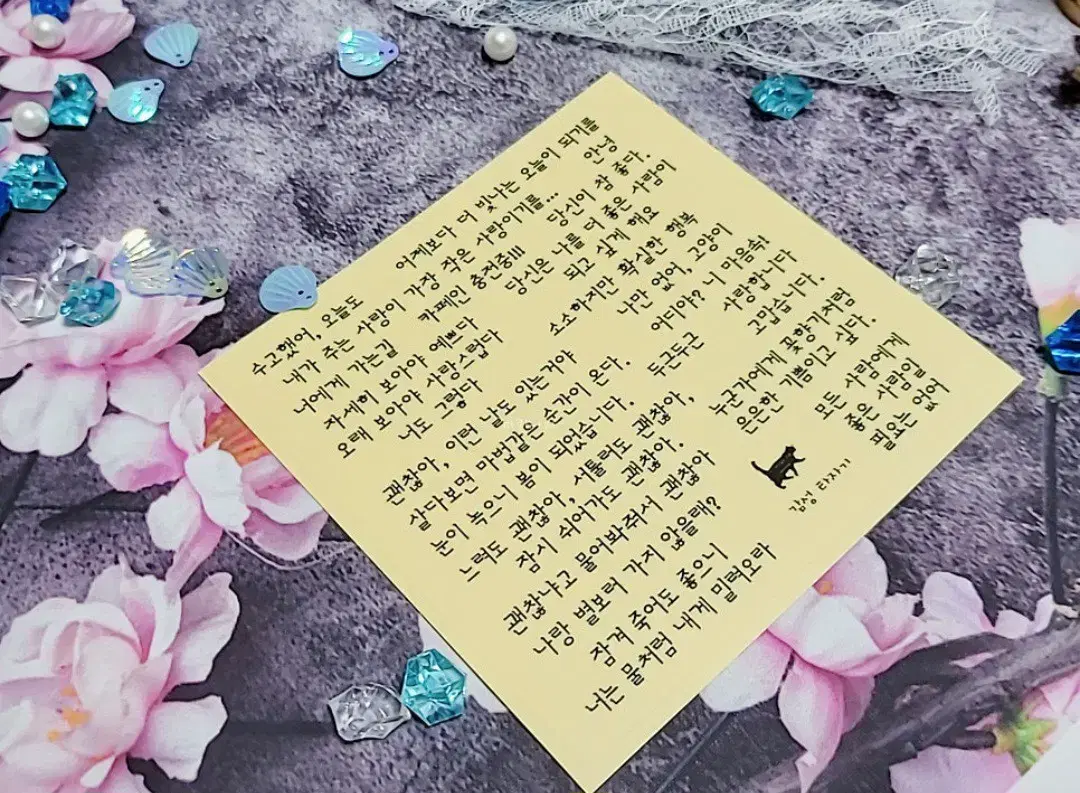 수고했어, 오늘도
어제보다 더 빛나는 오늘이 되기를
내가 주는 사랑이 가장 작은 사랑이기를...
안녕
너에게 가는길
카페인 충전중!!!
당신이 참 좋다.
자세히 보아야 예쁘다
오래 보아야 사랑스럽다
너도 그렇다
당신은 나를 더 좋은 사람이
되고 싶게 해요
소소하지만 확실한 행복
괜찮아, 이런 날도 있는거야
나만 없어, 고양이
살다보면 마법같은 순간이 온다.
어디야? 니 마음속!
눈이 녹으니 봄이 되었습니다.
두근두근
사랑합니다
고맙습니다.
느려도 괜찮아, 서툴러도 괜찮아,
잠시 쉬어가도 괜찮아.
누군가에게 꽃향기처럼
은은한 기쁨이고 싶다.
괜찮냐고 물어봐줘서 괜찮아
나랑 별보러 가지 않을래?
모든 사람에게
좋은 사람일
필요는 없어
잠겨 죽어도 좋으니
너는 물처럼 내게 밀려오라
감성 타자기